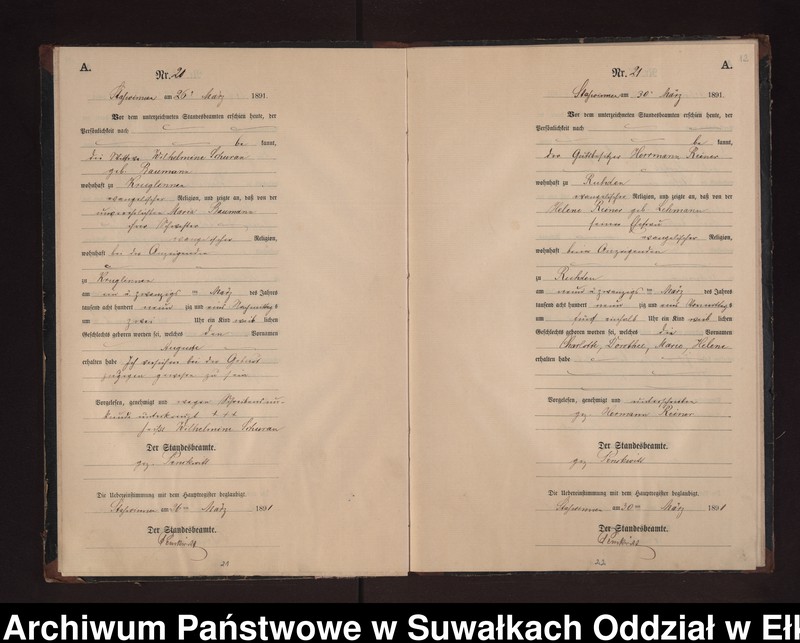 A.
Nr. 21
Staßwinnen am 26t März 1891.
Vor dem unterzeichneten Standesbeamten erschien heute, der
Persönlichkeit nach
be kannt,
die Wilhelmine Schuran
geb. Baumann
wohnhaft zu Kruglinnen
evangelischer Religion, und zeigte an, daß von der
unverehelichten Marie Baumann
ihre Schwester
evangelischer Religion,
wohnhaft bei der Anzeigenden
zu Kruglinnen
am ein u zwanzigs ten März des Jahres
tausend acht hundert neun zig und eins Nachmittags
um zwei Uhr ein Kind weib lichen
Geschlechts geboren worden sei, welches den Vornamen
Auguste
erhalten habe Ich versichere bei der Geburt
zugegen gewesen zu sein
Vorgelesen, genehmigt und wegen Schreibensun-
kunde unterkreuzt + + +
Wilhelmine Schuran
Der Standesbeamte.
gez.
Die Uebereinstimmung mit dem Hauptregister beglaubigt.
Staßwinnen am 26ten März 1891
Der Standesbeamte.
21
A.
Nr. 21
Staßwinnen am 30t März 1891.
Vor dem unterzeichneten Standesbeamten erschien heute, der
Persönlichkeit nach
be kannt,
der Gutsbesitzer Herrmann
wohnhaft zu
evangelischer Religion, und zeigte an, daß von der
Helene geb. Lehmann
seiner Ehefrau
evangelischer Religion,
wohnhaft beim Anzeigenden
zu
am neun u zwanzigs ten März des Jahres
tausend acht hundert neun zig und eins Vormittags
um fünf einhalb Uhr ein Kind weib lichen
Geschlechts geboren worden sei, welches die Vornamen
Charlotte, Dorothea, Marie, Helene
erhalten habe
Vorgelesen, genehmigt und unterschrieben
gez Hermann
Der Standesbeamte.
gez
Die Uebereinstimmung mit dem Hauptregister beglaubigt.
Staßwinnen am 30ten März 1891
Der Standesbeamte.
22
Archiwum Państwowe w Suwałkach Oddział w Eł